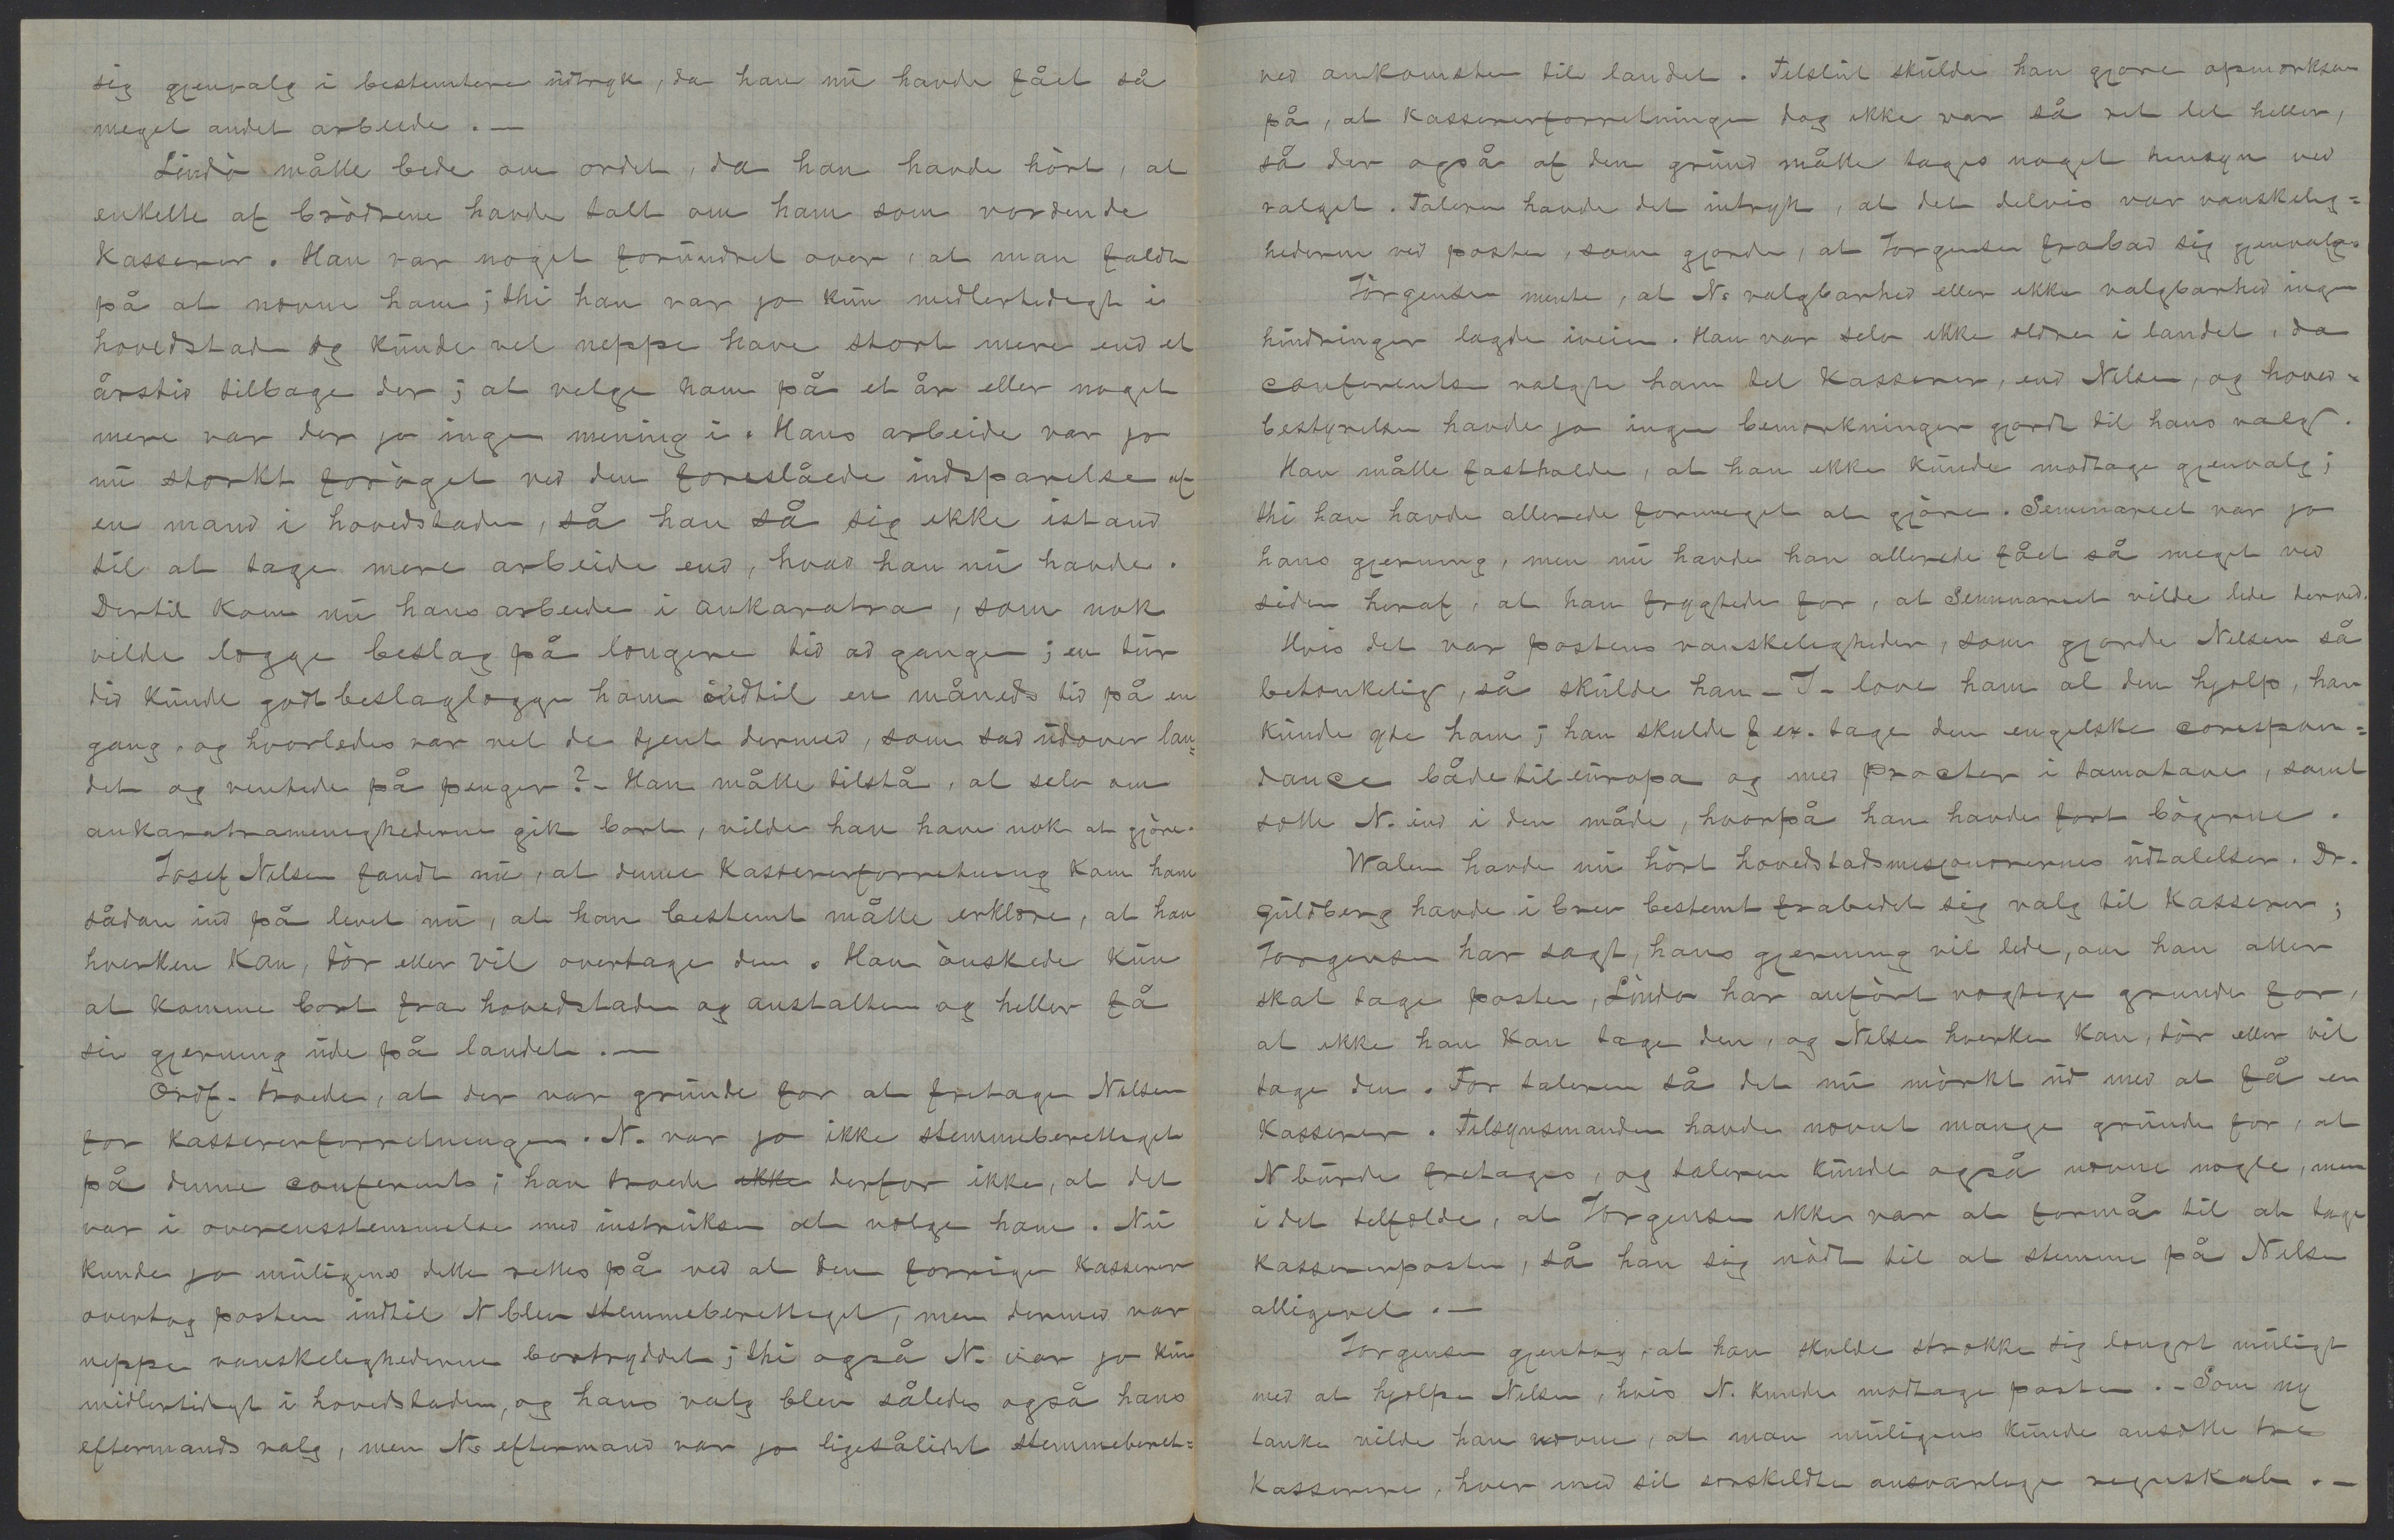 sig gjenvalg i bestemtere udtryk, da han nu havde fået så
meget andet arbeide. —
Lindø måtte bede om ordet, da han havde hört, at
enkelte af brödrene havde talt om ham som vordende
Kasserer. Han var noget forundret over, at man faldt
på at nævne ham; thi han var jo kun midlertidigt i
hovedstaden og kunde vel neppe have stort mere end et
årstid tilbage der; at velge ham på et år eller noget
mere var der jo ingen mening i. Hans arbeide var jo
nu stærkt foröget ved den foreslåede indsparelse af
en mand i hovedstaden, så han så sig ikke istand
til at tage mere arbeide end, hvad han nu havde.
Dertil kom nu hans arbeide i Ankaratra, som nok
vilde lægge beslag på længere tid ad gangen; en tur
did kunde godt beslaglægge ham indtil en måneds tid på en
gang, og hvorledes var vel de tjent dermed, som sad udover lan=
det og ventede på penger? – Han måtte tilstå, at selv om
ankaratramenighederne gik bort, vilde han have nok at gjöre.
Josef Nilsen fandt nu, at denne Kassererforretning kom ham
sådan ind på livet nu, at han bestemt måtte erklære, at han
hverken kan, tör eller vil overtage den. Han önskede kun
at komme bort fra hovedstaden og anstalten og heller få
sin gjerning ude på landet. —
Ordf. troede, at der var grunde for at fritage Nilsen
for kassererforretningen. N. var jo ikke stemmeberettiget
på denne conferents; han troede ikke derfor ikke, at det
var i overensstemmelse med instruksen at vælge ham. Nu
kunde jo muligens dette rettes på ved at den forrige Kasserer
overtog posten indtil N blev stemmeberettiget, men dermed var
neppe vanskelighederne bortryddet; thi også N. var jo kun
midlertidigt i hovedstaden, og hans valg blev således også hans
eftermands valg, men N.s eftermand var jo ligesålidet stemmeberet=
ved ankomsten til landet. Tilslut skulde han gjøre opmærksom
på, at Kassererforretningen dog ikke var så ret let heller,
så der også af den grund måtte tages noget hensyn ved
valget. Taleren havde det intryk, at det delvis var vanskelig=
hederne ved posten, som gjorde, at Jørgensen frabad sig gjenvalg.
Jörgensen mente, at N.s valgbarhed eller ikke valgbarhed ingen
hindringer lagde iveien. Han var selv ikke ældre i landet, da
conferentsen valgte ham til Kasserer, end Nilsen, og hoved=
bestyrelsen havde jo ingen bemærkninger gjordt til hans valg.
Han måtte fastholde, at han ikke kunde modtage gjenvalg;
thi han havde allerede formeget at gjöre. Seminariet var jo
hans gjerning, men nu havde han allerede fået så meget ved
siden heraf, at han frygtede for, at Seminariet vilde lide derved.
Hvis det var postens vanskeligheder, som gjorde Nilsen så
betænkelig, så skulde han – J – love ham al den hjælp, han
kunde yde ham; han skulde f ex. tage den engelske corespon=
dance både til europa og med Procter i Tamatave, samt
sætte N. ind i den måde, hvorpå han havde fört bögerne.
Walen havde nu hört hovedstadsmisjonærernes udtalelser. Dr.
Guldberg havde i brev bestemt frabedet sig valg til Kasserer;
Jørgensen har sagt, hans gjerning vil lide, om han atter
skal tage posten, Lindø har anfört vægtige grunde for,
at ikke han kan tage den, og Nilsen hverken kan, tör eller vil
tage den. For taleren så det nu mörkt ud med at få en
Kasserer. Tilsynsmanden havde nævnt mange grunde for, at
N burde fritages, og taleren kunde også nævne nogle, men
i det tilfælde, at Jørgensen ikke var at formå til at tage
kassererposten, så han sig nödt til at stemme på Nilsen
alligevel. —
Jørgensen gjentog, at han skulde strække sig længst muligt
med at hjælpe Nilsen, hvis N. kunde modtage posten. – Som ny
tanke vilde han nævne, at man muligens kunde ansætte tre
Kasserere, hver med sit særskildte ansvarlige regnskab. —